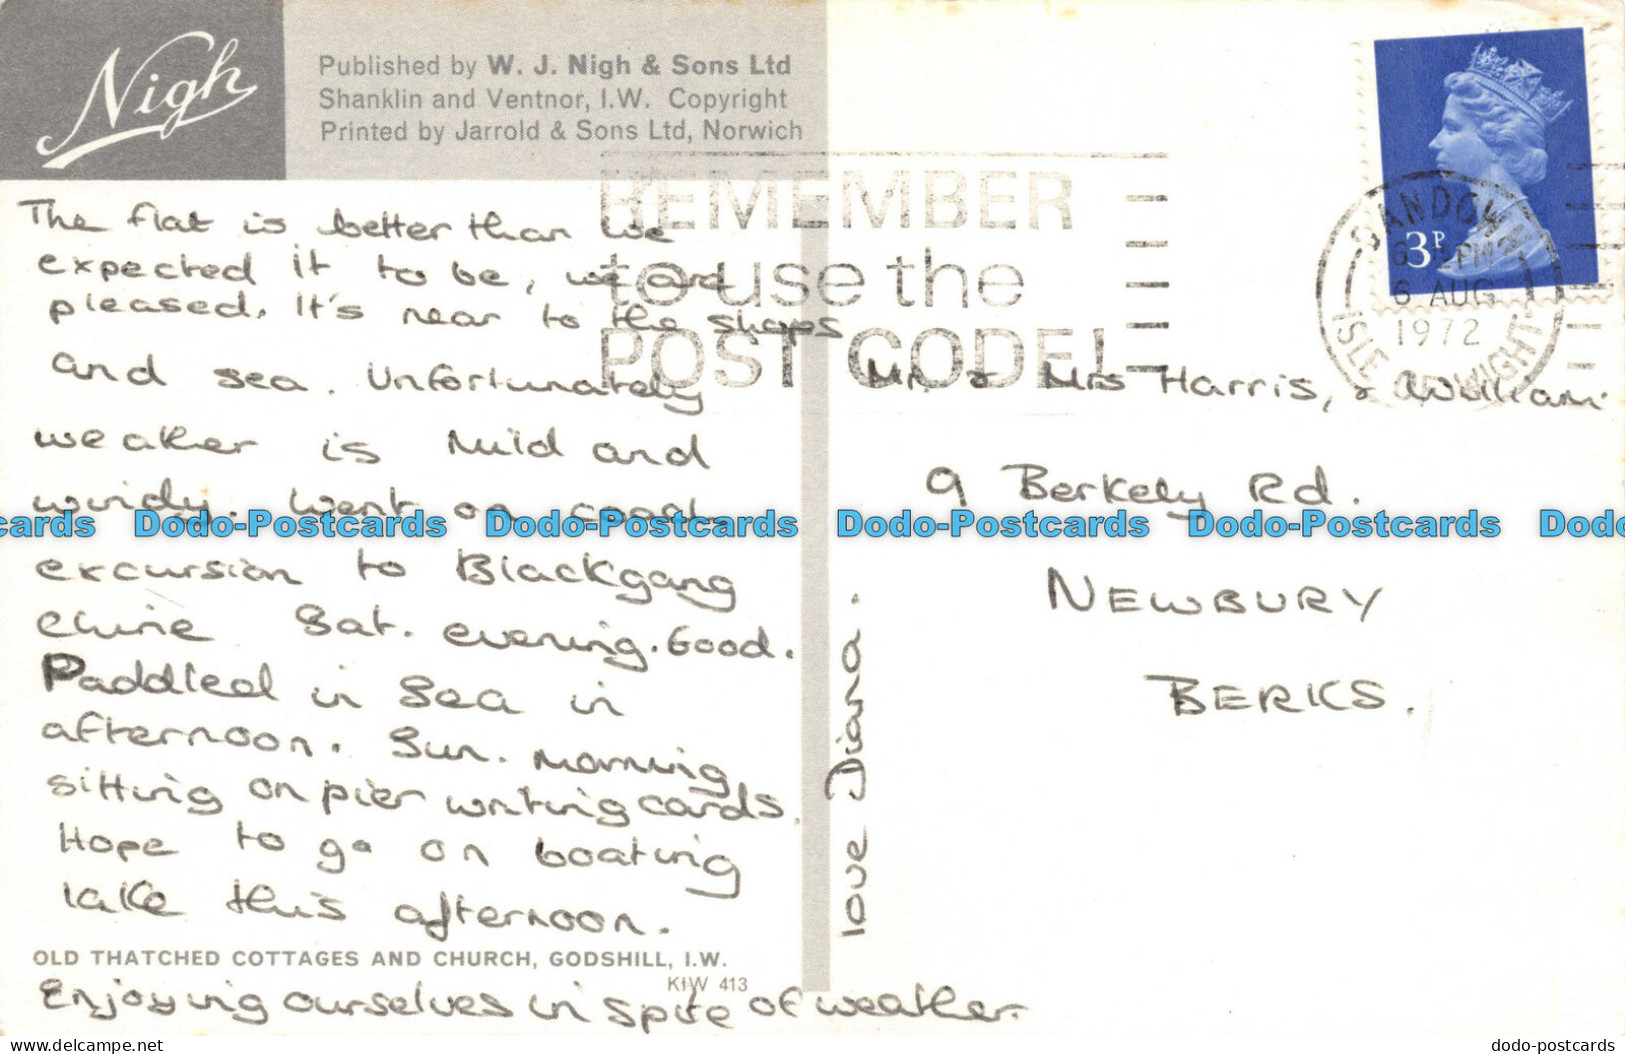 Nigh
Published by W. J. Nigh & Sons Ltd
Shanklin and Ventnor, I.W. Copyright
Printed by Jarrold & Sons Ltd, Norwich
REMEMBER
to use the
POST CODE!
3P
SANDOWN
6 AUG
1972
ISLE OF WIGHT
The flat is better than we
expected it to be, we are
pleased. It's near to the shops
and sea. Unfortunately
weather is mild and
windy. Went on coach
excursion to Blackgang
chine Sat. evening. Good.
Paddled in Sea in
afternoon. Sun. morning
sitting on pier writing cards.
Hope to go on boating
lake this afternoon.
OLD THATCHED COTTAGES AND CHURCH, GODSHILL, I.W.
KIW 413
Enjoying ourselves in spite of weather.
love Diana.
Mr. & Mrs Harris, & William
9 Berkely Rd.
NEWBURY
BERKS.
cards Dodo-Postcards Dodo-Postcards Dodo-Postcards Dodo-Postcards Dodo
Website: dodo-postcards.delcampe.net
dodo-postcards